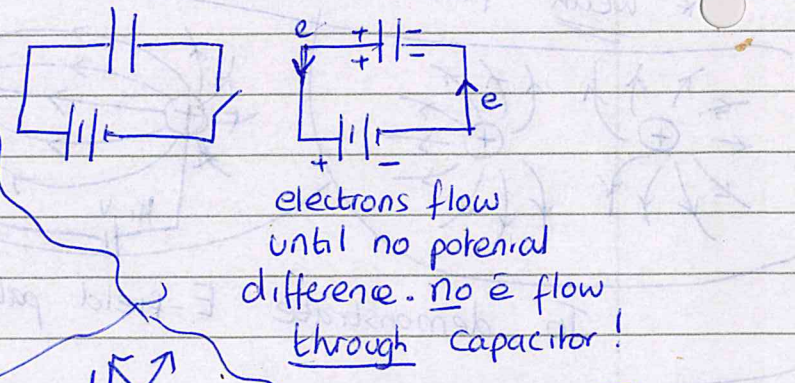 e
+ -
+ -
e
+ -
electrons flow
until no potenial
difference. no ē flow
through capacitor!